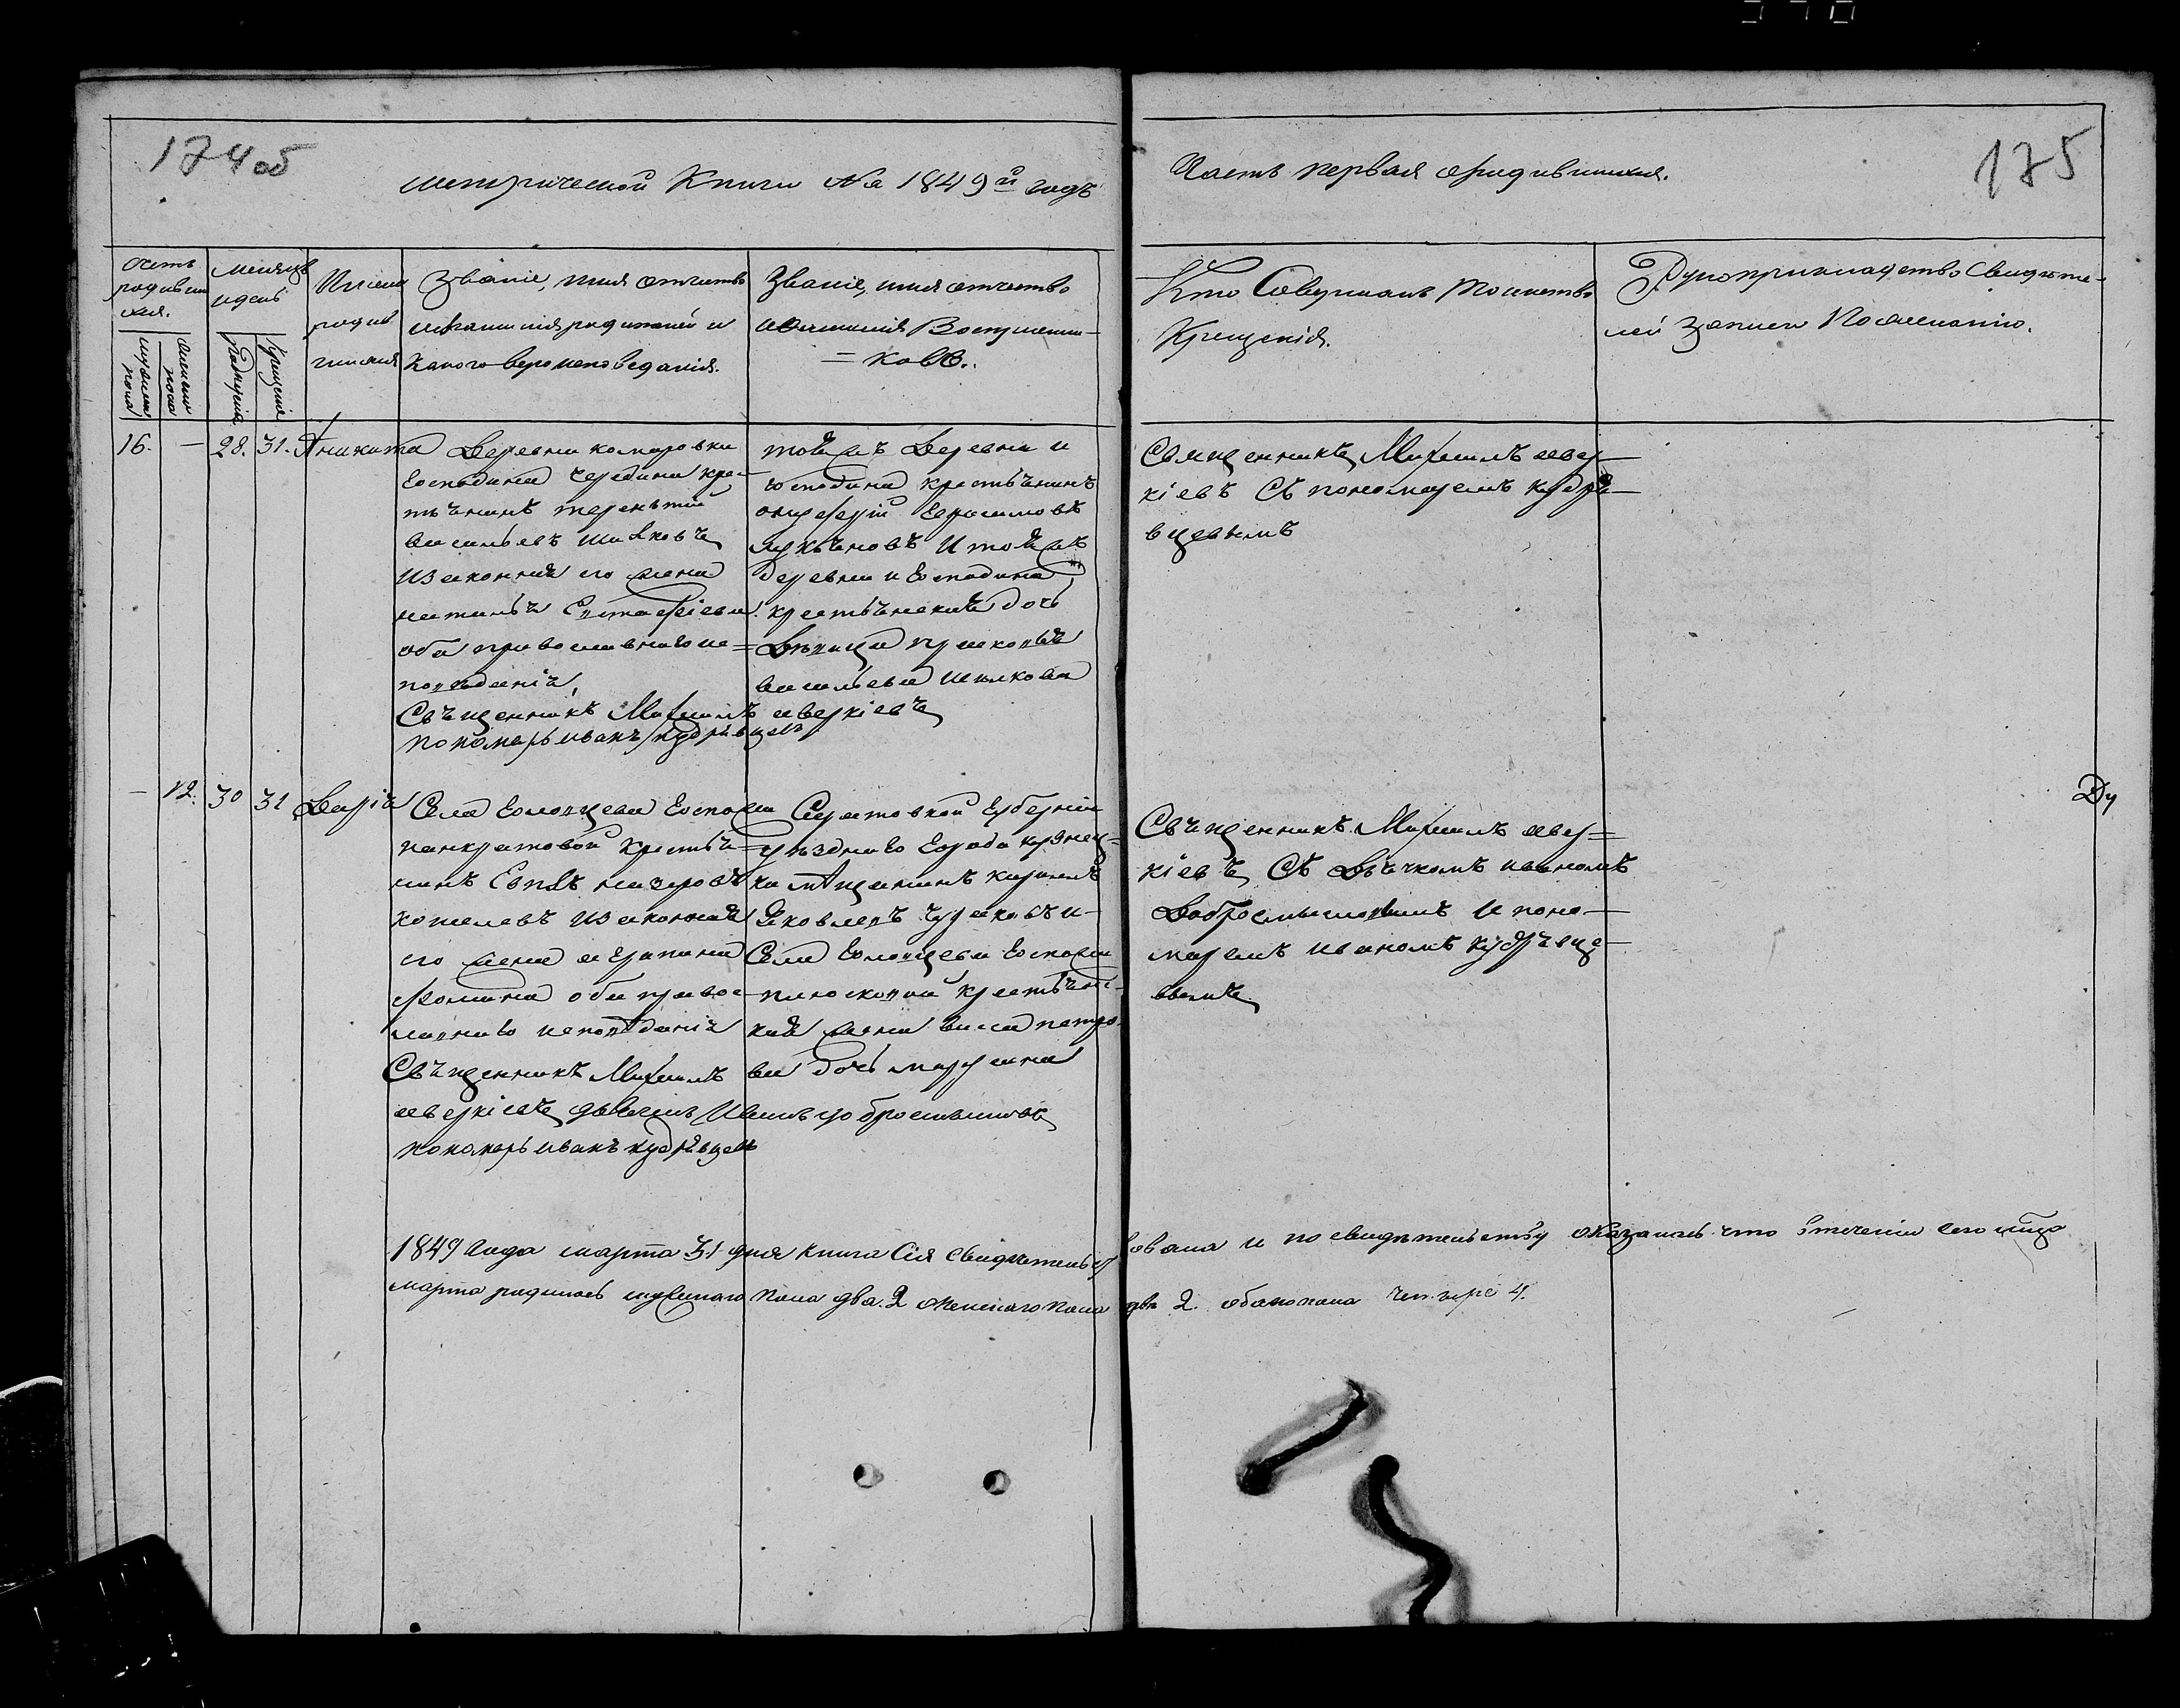 174 об
175
метрической Книги На 1849й годъ
Часть первая о родившихся.
Счетъ родившихся.
мужеска пола
женска пола
месяцъ и день
рождения
Крещение
Имена родившихся
Званіе, имя отчество
и фамилія родителей и
какого вероисповеданія.
Званіе, имя отчество
и фамилія Воспріемни-
=ковъ.
Кто Совершалъ Таинство
Крещенія.
Рукоприкладство Свидѣте-
лей записи По желанію.
16. — 28. 31. Аникита
Деревни комаровки
Господина Чередина кре-
тьянинъ терентий
васильевъ
и законная его жена
Евтафіева
оба православнаго ис=
поведания,
Священникъ Михаилъ аверкіевъ
пономарь иванъ кудрявцевъ
тойжъ Деревни и
господина крестьянинъ
Герасимовъ
лукьяновъ И тойжъ
деревни и Господина
крестьянская дочь
Девица
васильева
Священникъ Михаилъ авер-
кіевъ Съ пономаремъ кудря-
вцевымъ
— 12. 30 31 Дарія
Села Голопцева Госпожи
панкратовой Крестья=
нинъ
кошелевъ и законная
его жена аграпина
Фомина оба правос-
лавнаго исповедания
Священникъ Михаилъ
аверкіевъ дьячекъ Иванъ добросмысловъ
пономарь иванъ кудрявцевъ
Саратовкой Губернии
уѣзднаго Города кузнец=
ка мещанинъ кирилъ
Яковлевъ и-
Села Голопцева Госпожи
крестьянс-
кая жена петро-
ва дочь марфина
Священникъ Михаилъ авер=
кіевъ Съ Дьячкомъ иваномъ
Добросмысловымъ и поно-
маремъ иваномъ кудрявце-
вымъ
Ду
1849 года марта 31 дня книга Сія свидѣтельствована и по свидѣтельству оказалось что втеченіи сего мца
марта родилось мужескаго пола два. 2 женскаго пола двѣ 2. обоего пола четыре 4.